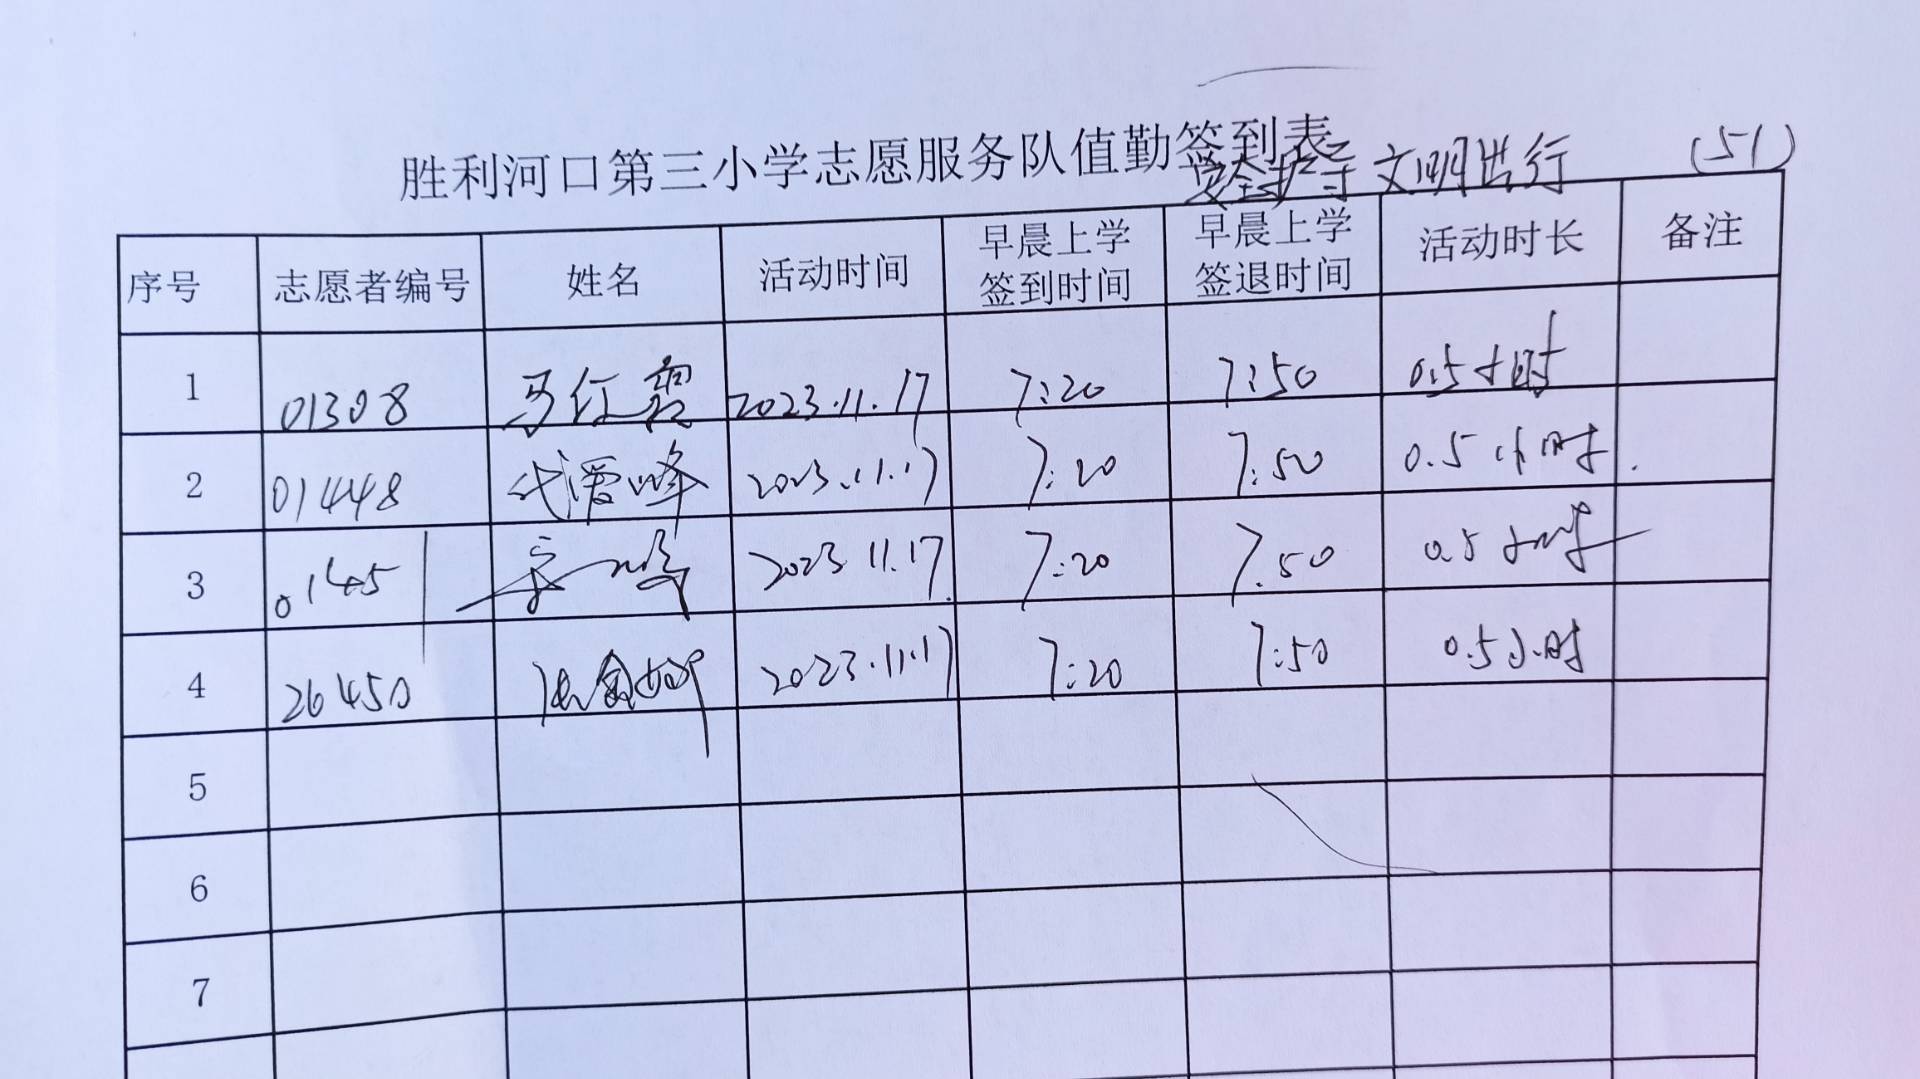 胜利河口第三小学志愿服务队值勤签到表
安全护导 文明出行 (51)
序号 志愿者编号 姓名 活动时间 早晨上学签到时间 早晨上学签退时间 活动时长 备注
1 01308 马红霞 2023.11.17 7:20 7:50 0.5小时
2 01448 代爱峰 2023.11.17 7:20 7:50 0.5小时.
3 01451 2023.11.17 7:20 7.50 0.5小时
4 26450 2023.11.17 7:20 7:50 0.5小时
5
6
7